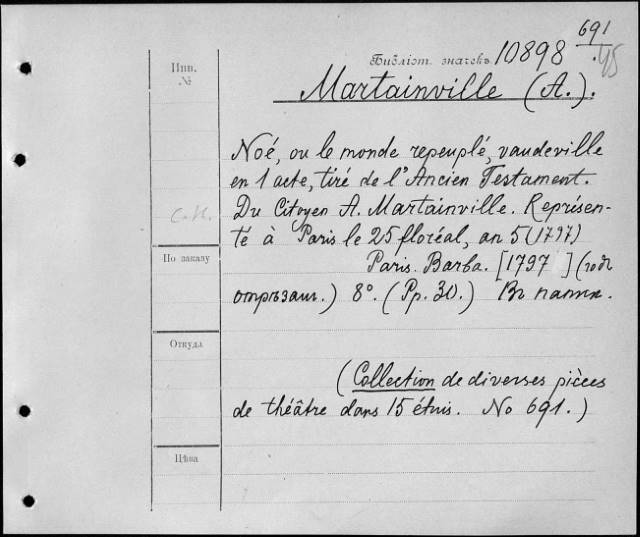 691
Библіот. значекъ 10898 .45
Инв.
№
Martainville (A.).
Noé, ou le monde repeuplé, vaudeville
en 1 acte, tiré de l'Ancien Testament.
Du Citoyen A. Martainville. Représen-
té à Paris le 25 floréal, an 5 (1797)
Paris. Barba. [1797 ] (годъ
отрѣзан.) 8°. (Pp. 30.) Въ папкѣ.
По заказу
Откуда
(Collection de diverses pièces
de théâtre dans 15 étuis. No 691.)
Цѣна